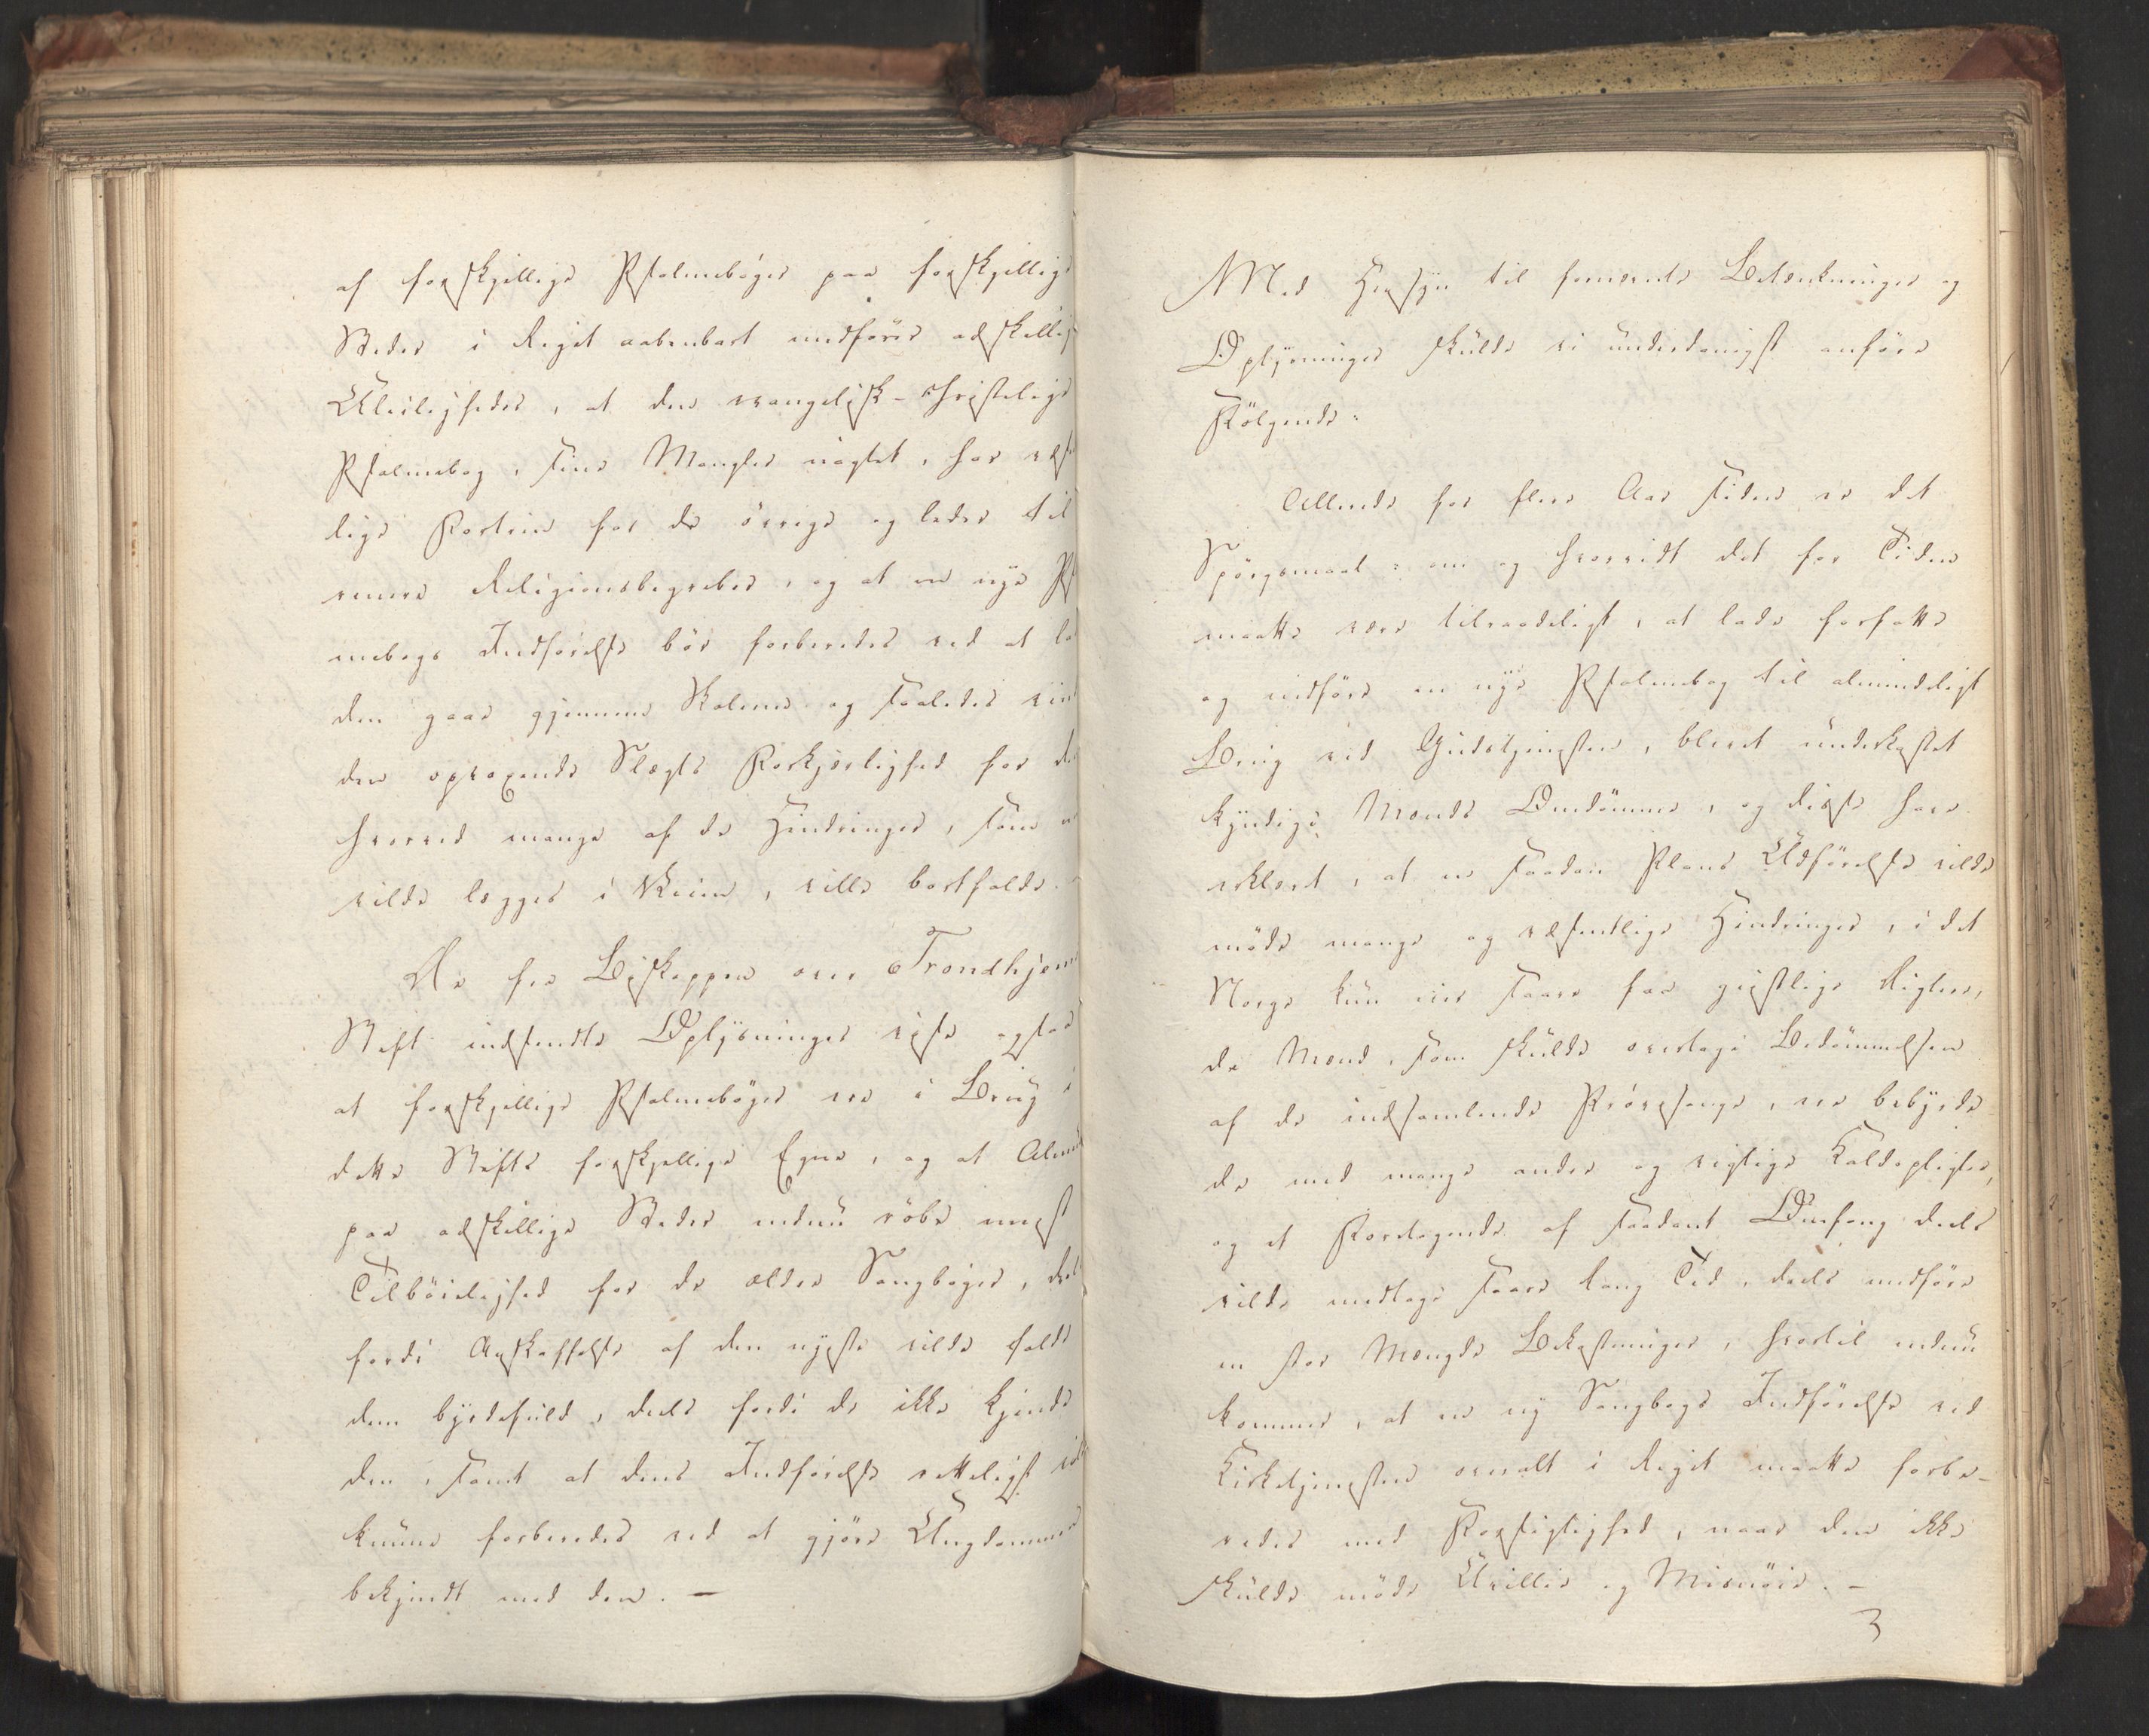 af forskjellige Psalmebøger paa forskjellige
Steder i Riget aabenbart medfører adskellig
Uleiligheder, at den evangelisk-christelige
Psalmebog, sine Mangler uagtet, har
lige Fortrin for de øvrige og leder til
renere Religionsbegreber, og at en nye Ps
mebogs Indførelse bør forberedes ved at la
den gaae gjennem Skolerne og saaledes vin
den opvoxende Slægts Forkjerlighed for de
hvorved mange af de Hindringer, som
vilde lægges i Veien, ville bortfalde.
De fra Biskoppen over Trondhjems
Stift indsendte Oplysninger vise ogsaa
at forskjellige Psalmebøger ere i Brug i
dette Stifts forskjellige Egne, og at Almu
paa adskillige Steder endnu røbe meest
Tilbøielighed for de ældre Sangbøger, deels
fordi Anskaffelse af den nyeste vilde falde
dem byrdefuld, deels fordi de ikke kjende
den, samt at dens Indførelse retteligst vil
kunne forberedes ved at gjøre Ungdommen
bekjendt med den. -
Med Hensyn til fornævnte Betænkninger og
Oplysninger skulde vi underdanigst anføre
Følgende:
Allerede for flere Aar siden er det
Spørgsmaal: om og hvorvidt det for Tiden
maatte være tilraadeligt, at lade forfatte
og indføre en nye Psalmebog til almindeligt
Brug ved Gudstjenesten, blevet underkastet
kyndige Mænds Omdømme, og disse have
erklæret, at en saadan Plans Udførelse vilde
møde mange og væsentlige Hindringer, i det
Norge kun eier saare faa geistlige Digtere,
de Mænd, som skulde overtage Bedømmelsen
af de indsamlende Prøvesange, ere bebyrde-
de med mange andre og vigtige Kaldspligter,
og et Foretagende af saadant Omfang deels
vilde medtage saare lang Tid, deels medføre
en stor Mængde Bekostninger, hvortil endnu
kommer, at en ny Sangbogs Indførelse ved
Kirketjenesten overalt i Riget maatte forbe-
redes med Forsigtighed, naar den ikke
skulde møde Uvillie og Misnøie. -
3